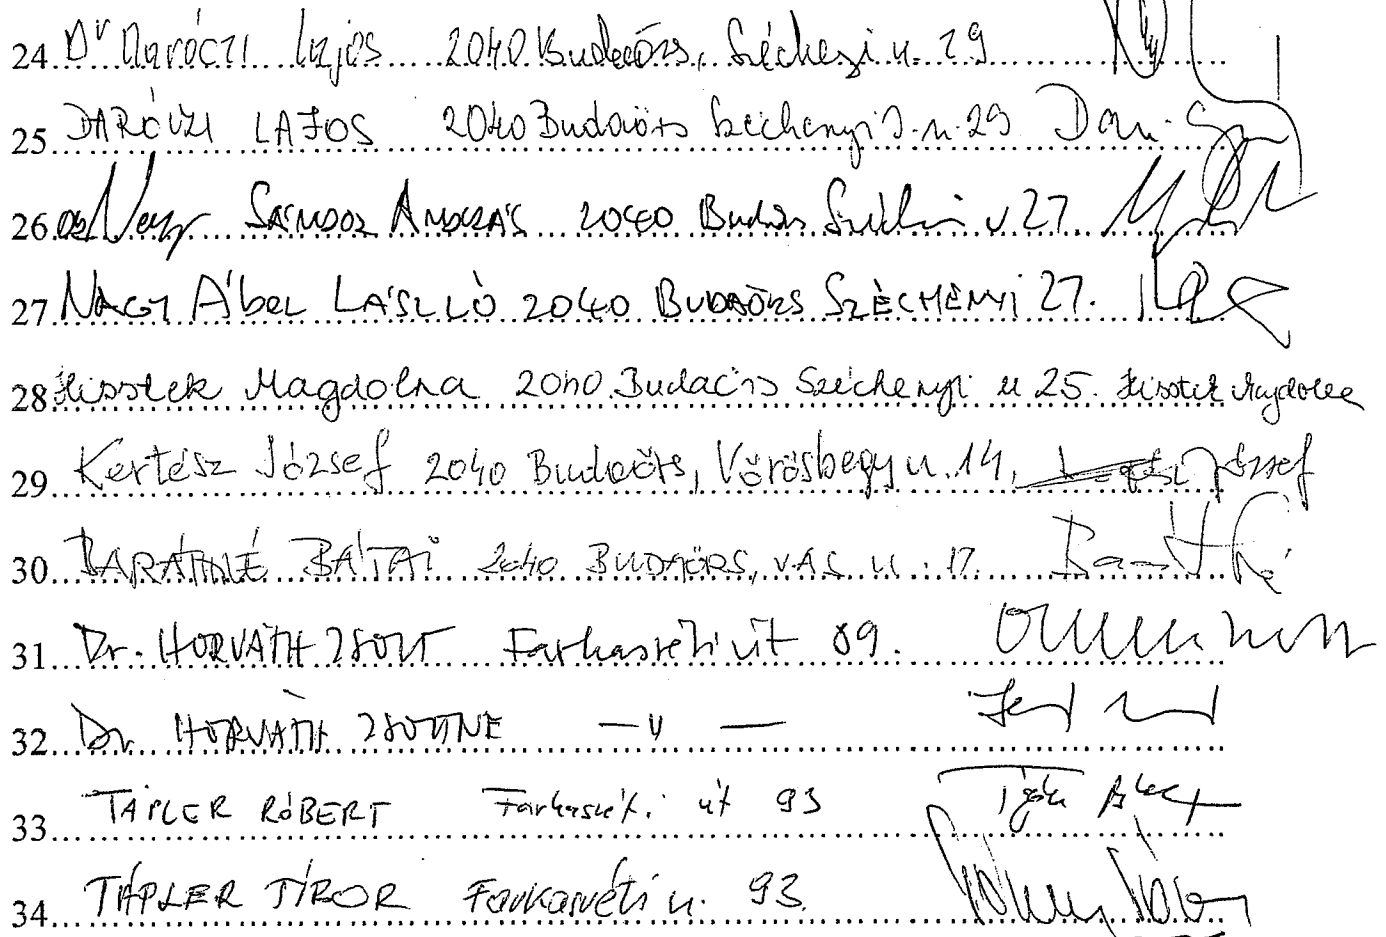 24 Dr Daróczi Lajos 2040 Budaörs, Széchenyi u. 29
25 DARÓCZI LAJOS 2040 Budaörs Széchenyi I. u. 29
26 Nagy SÁNDOR ANDRÁS 2040 Budaörs u 27.
27 NAGY Ábel LÁSZLÓ 2040 BUDAÖRS SZÈCHENYI 27.
28 Magdolna 2040 Budaörs Széchenyi u 25. Magdolna
29 Kertész József 2040 Budaörs, Vörösbegy u. 14, József
30 BARÁTHNÉ BÁTAI 2040 BUDAÖRS, VAS U. 17.
31 Dr. HORVÁTH ZSOLT Farkasréti út 89.
32 Dr. HORVÁTH ZSOLTNÉ — u —
33 TÁPLER RÓBERT Farkasréti út 93
34 TÁPLER TIBOR Farkasréti u. 93.